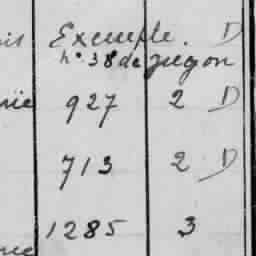 Exemple. D
n° 38 de Jugon
927 2 D
713 2 D
1285 3